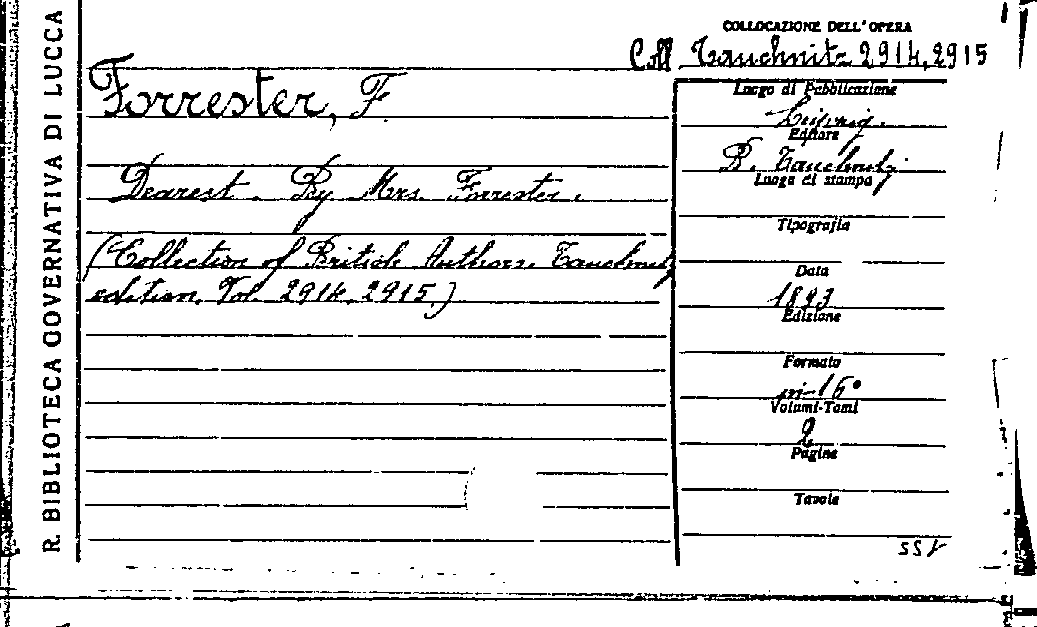 R. BIBLIOTECA GOVERNATIVA DI LUCCA
COLLOCAZIONE DELL'OPERA
Coll. Tauchnitz 2914, 2915
Forrester, F.
Dearest. By Mrs. Forrester.
(Collection of British Authors. Tauchnitz
edition. Vol. 2914, 2915.)
Luogo di Pubblicazione
Leipzig.
Editore
B. Tauchnitz
Luogo di stampa
Tipografia
Data
1893
Edizione
Formato
in-16°
Volumi-Tomi
2
Pagine
Tavole